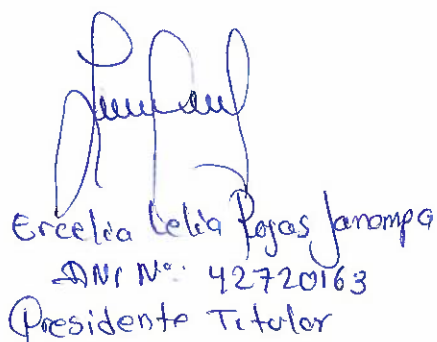 Ercelia Celia Rojas Janampa
DNI N°: 42720163
Presidente Titular